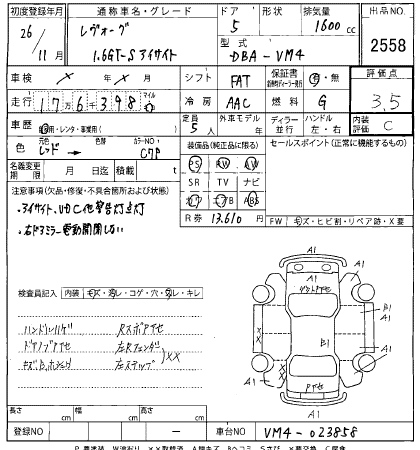 初度登録年月 通称車名・グレード ドア 形状 排気量 出品NO.
26/11月 レヴォーグ 1.6GT-S アイサイト 5 1600cc 2558
型式 DBA-VM4
車検 × 年 × 月 シフト FAT 保証書 有・無 評価点
走行 17万6千398 マイル 冷房 AAC 燃料 G 3.5
車歴 自家用・レンタ・事業用( ) 定員 5人 外車モデル 年 ディーラー 並行 ハンドル 左・右 内装評価 C
色 元色 レッド → 色替 カラーNO. C7P 装備品(純正品に限る) セールスポイント(正常に機能するもの)
名義変更期限 月 日 積載 t PS PW AW
注意事項(欠品・修復・不具合箇所および状態) SR TV ナビ
・アイサイト、VDC他警告灯点灯 エアB ABS
・右ドアミラー電動開閉しない R券 13,610円 FW キズ・ヒビ割・リペア跡・X要
検査員記入 内装 キズ・汚レ・コゲ・穴・スレ・キレ
ハンドルハゲ RスポアセA
ドアノブアセ 左Rフェンダ
左ステップ ××
A1
A1
A1
B1
B1
××
××
A1
A1
A1
長さ cm 幅 cm 高さ cm
登録NO - 車台NO VM4-023858